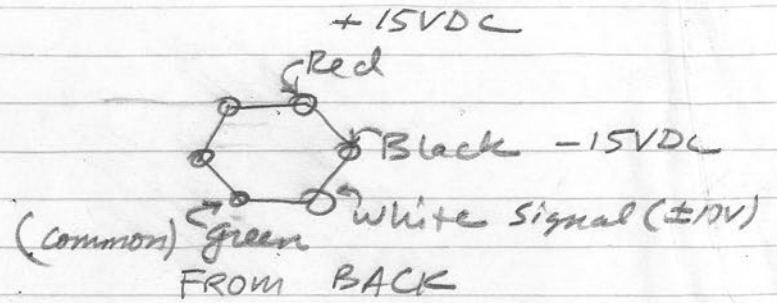 +15VDC
Red
Black -15VDC
White Signal (±10V)
(common) green
FROM BACK